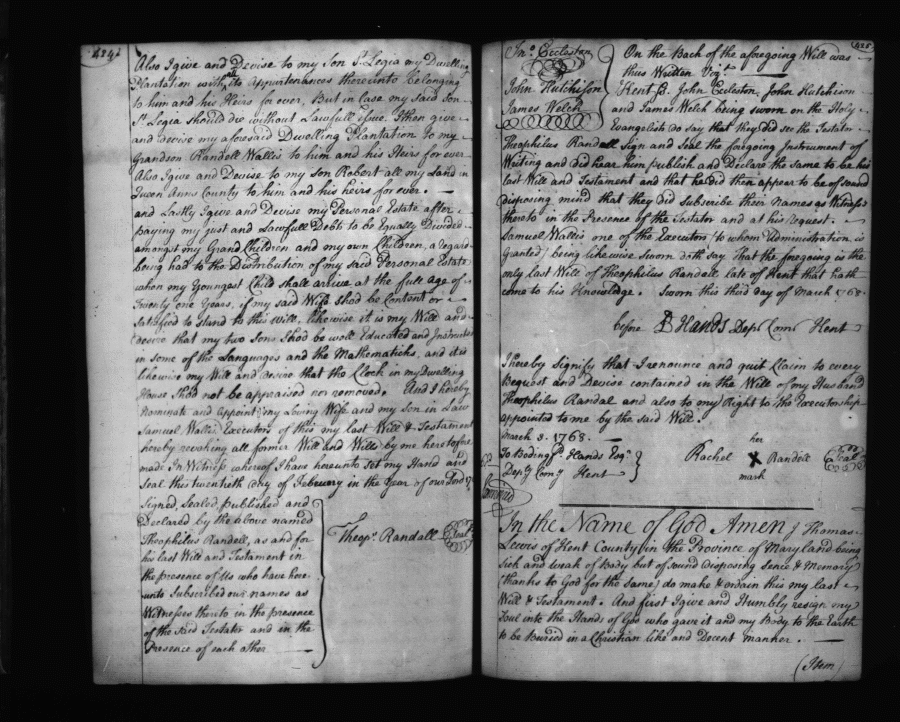 424
Also I give and Devise to my Son St. Legia my Dwelling
Plantation with all its Appurtenances thereunto belonging
to him and his Heirs for ever, But in Case my Said Son
St. Legia should die without Lawfull issue. I then give
and devise my aforesaid Dwelling Plantation to my
Grandson Randell Wallis to him and his Heirs for ever
Also I give and Devise to my Son Robert all my Land in
Queen Anns County to him and his heirs for ever.
and Lastly I give and Devise my Personal Estate after
paying my just and Lawfull Debts to be Equally Divided
amongst my Grand Children and my own Children, a regard
being had to the Distribution of my said Personal Estate
when my Youngest Child shall arrive at the full age of
Twenty one Years, if my said Wife shod be Content or
Satisfied to stand to this will, likewise it is my Will and
desire that my two Sons shod be well Educated and Instructed
in some of the Languages and the Mathematicks, and it is
likewise my Will and desire that the Clock in my Dwelling
House shod not be appraised nor removed. And I hereby
Nominate and appoint my Loving Wife and my Son in Law
Samuel Wallis Executors of this my last Will & Testament
hereby revoking all former Will and Wills by me heretofore
made In Witness whereof I have hereunto set my Hand and
Seal this twentieth day of February in the Year of our Lord
Signed, Sealed, published and
Declared by the above named
Theophilus Randell, as and for
his last Will and Testament in
the presence of Us who have here
unto Subscribed our names as
Witnesses thereto in the presence
of the said Testator and in the
Presence of each other
Theops. Randall Seal
425
Jno. Eccleston
John Hutchison
James Welch
On the Back of the aforegoing Will was
thus Written Vizt.
Kent ss. John Eccleston, John Hutchison
and James Welch being sworn on the Holy
Evangelists do say that they did see the Testator
Theophilus Randell Sign and Seal the foregoing Instrument of
Writing and did hear him publish and Declare the same to be his
last Will and Testament and that he did then appear to be of sound
disposing mind that they did Subscribe their Names as Witness
thereto in the Presence of the Testator and at his request.
Samuel Wallis one of the Executors (to whom Administration is
Granted) being likewise Sworn doth say That the foregoing is the
only last Will of Theophilus Randell late of Kent that hath
come to his Knowledge. Sworn this third day of March 1768
before B Hands Depy Comy Kent
I hereby Signify that I renounce and quit Claim to every
Bequest and Devise contained in the Will of my Husband
Theophilus Randal and also to my Right to the Executorship
appointed to me by the said Will.
March 3. 1768.
To Bedingfd. Hands Esqr.
Depy Comy Kent
her
Rachel X Randell
mark
Seal
In the Name of God Amen I Thomas
Lewis of Kent County in the Province of Maryland being
Sick and weak of Body but of sound disposing Sence & Memory
thanks to God for the same) do make & ordain this my last
Will & Testament. And first I give and Humbly resign my
Soul into the Hands of God who gave it and my Body to the Earth
to be Buried in a Christian like and Decent manner.
(Item)